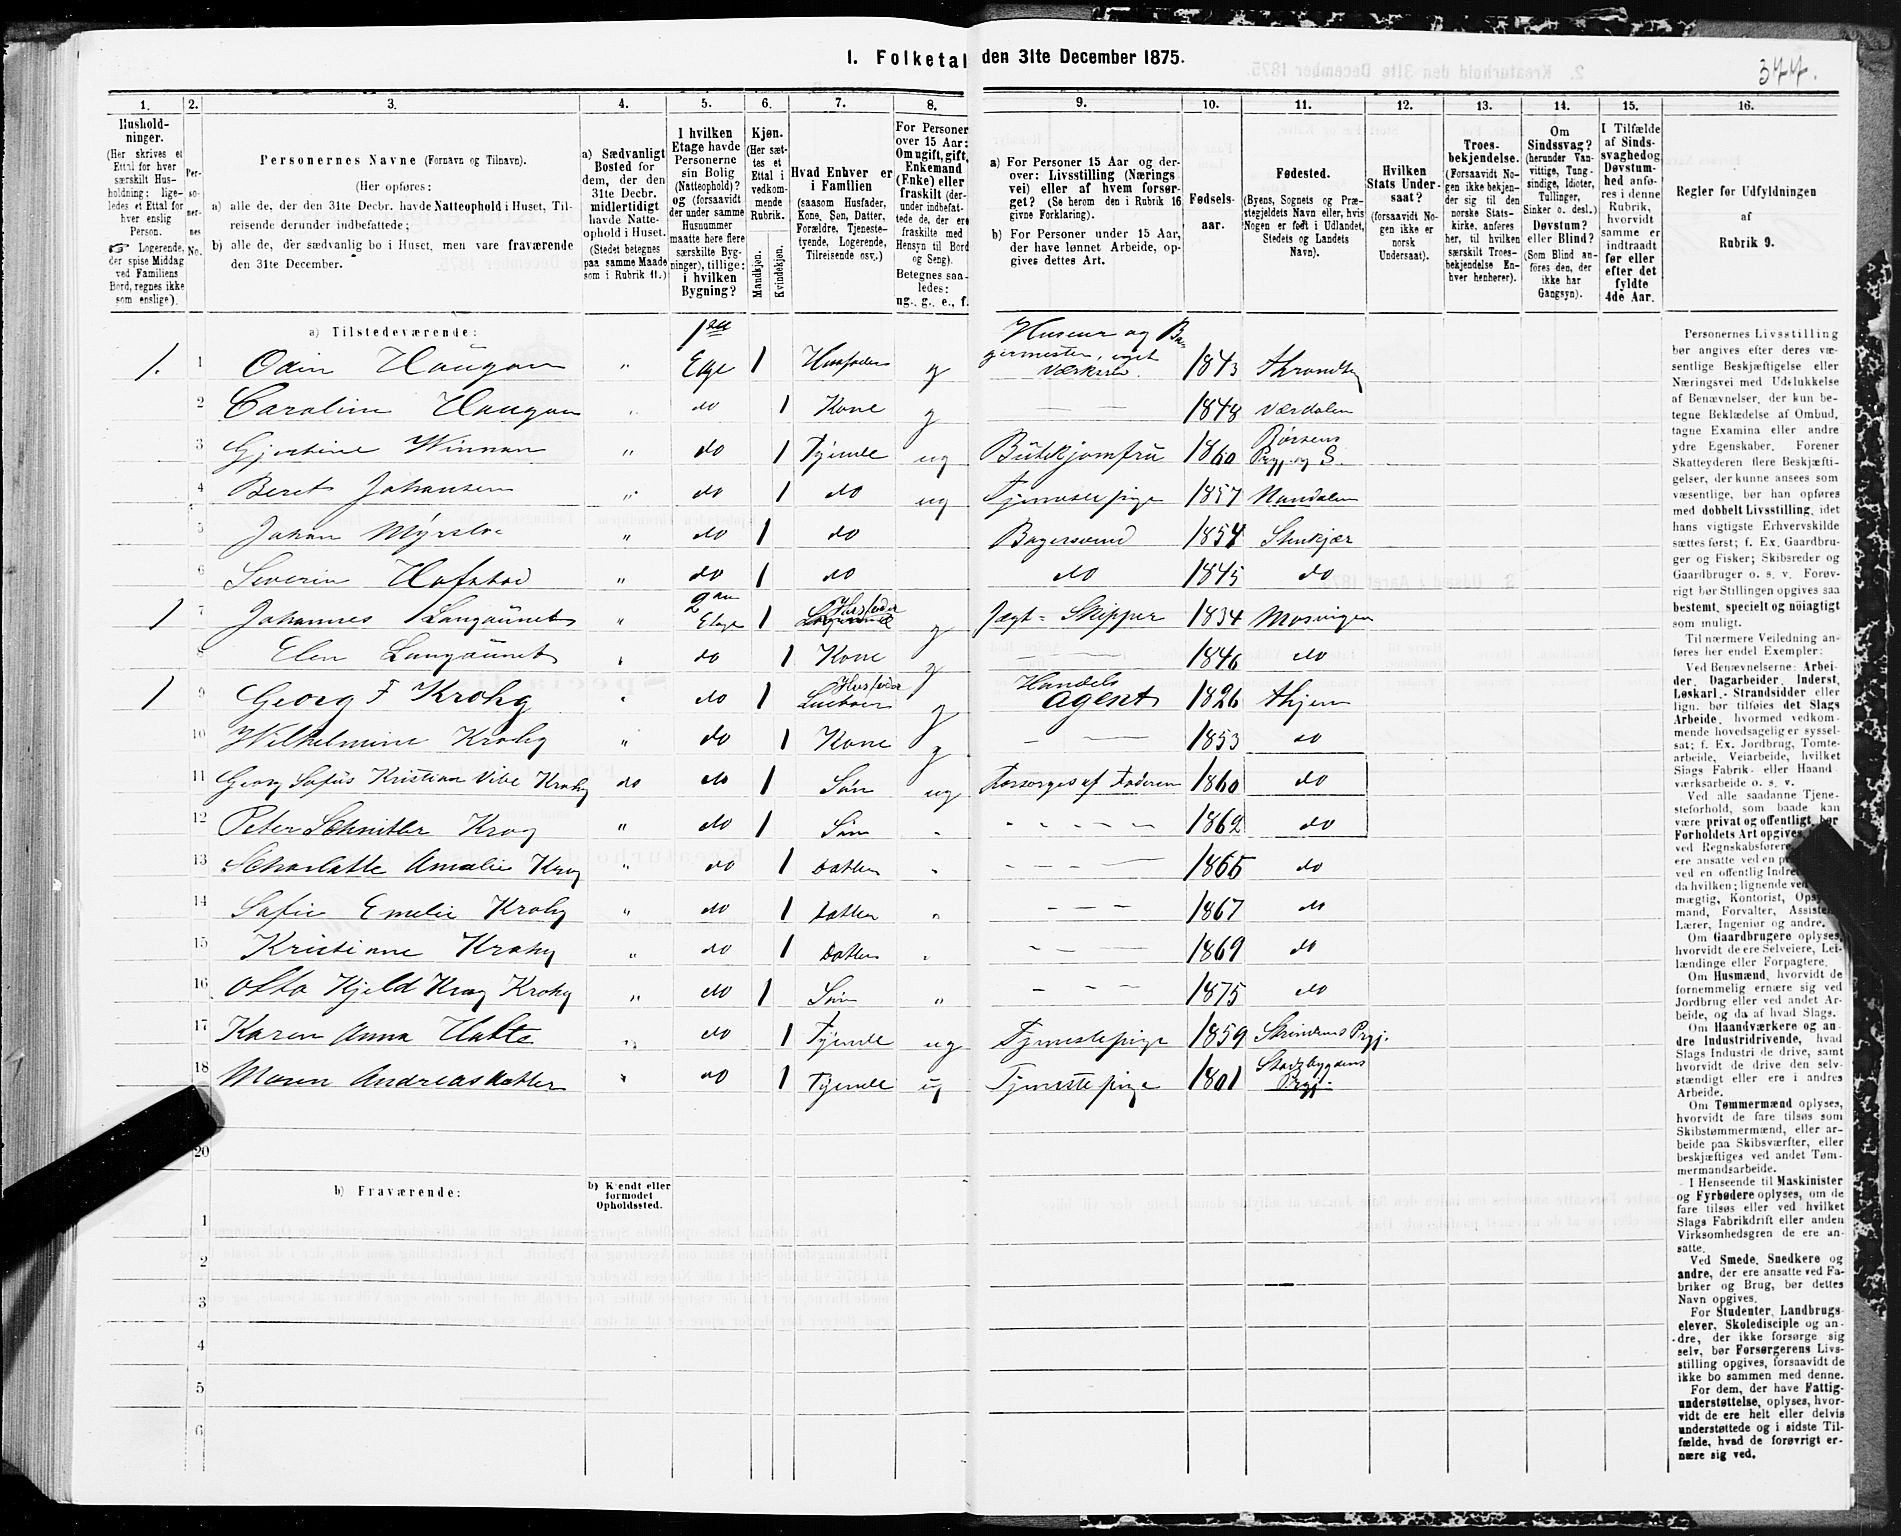 1. Folketal den 31te December 1875.
377.
1.
2.
3.
4.
5.
6.
7.
8.
9.
10.
11.
12.
13.
14.
15.
16.
Husholdninger.
(Her skrives et Ettal for hver særskilt Husholdning; ligeledes et Ettal for hver enslig Person.
☞ Logerende, der spise Middag ved Familiens Bord, regnes ikke som enslige).
Personernes No.
Personernes Navne (Fornavn og Tilnavn).
(Her opføres:
a) alle de, der den 31te Decbr. havde Natteophold i Huset, Tilreisende derunder indbefattede;
b) alle de, der sædvanlig bo i Huset, men vare fraværende den 31te December.
a) Sædvanligt Bosted for dem, der den 31te Decbr. midlertidigt havde Natteophold i Huset.
(Stedet betegnes paa samme Maade som i Rubrik 11.)
I hvilken Etage havde Personerne sin Bolig (Natteophold)? og (forsaavidt der under samme Husnummer maatte høre flere særskilte Bygninger), tillige: i hvilken Bygning?
Kjøn.
(Her sættes et Ettal i vedkommende Rubrik.
Mandkjøn.
Kvindekjøn.
Hvad Enhver er i Familien
(saasom Husfader, Kone, Søn, Datter, Forældre, Tjenestetyende, Logerende, Tilreisende osv.)
For Personer over 15 Aar: Om ugift, gift, Enkemand (Enke) eller fraskilt (derunder indbefattede de, der ere fraskilte med Hensyn til Bord og Seng).
Betegnes saaledes: ug., g., e., f.
a) For Personer 15 Aar og derover: Livsstilling (Næringsvei) eller af hvem forsørget? (Se herom den i Rubrik 16 givne Forklaring).
b) For Personer under 15 Aar, der have lønnet Arbeide, opgives dettes Art.
Fødselsaar.
Fødested.
(Byens, Sognets og Præstegjeldets Navn eller, hvis Nogen er født i Udlandet, Stedets og Landets Navn).
Hvilken Stats Undersaat?
(forsaavidt Nogen ikke er norsk Undersaat).
Troesbekjendelse.
(Forsaavidt Nogen ikke bekjender sig til den norske Statskirke, anføres her, til hvilken særskilt Troesbekjendelse Enhver henhører).
Om Sindssvag? (herunder Vanvittige, Tungsindige, Idioter, Tullinger, Sinker o. desl.) Døvstum? eller Blind? (Som Blind anføres den, der ikke har Gangsyn).
I Tilfælde af Sindssvaghed og Døvstumhed anføres i denne Rubrik, hvorvidt samme er indtraadt før eller efter det fyldte 4de Aar.
Regler før Udfyldningen af Rubrik 9.
a) Tilstedeværende:
1. 1 Odin Haugan " 1ste Etage 1 Husfader g Huseier og Bagermester, eget Værksted 1843 Throndhj
2 Caroline Haugan " do 1 Kone g — — 1848 Værdalen
3 Gjertine Winnan " do 1 Tyende ug Butikjomfru 1860 Børsens Prgj. og S.
4 Beret Johansen " do 1 do ug Tjenestepige 1857 Namdalen
5 Johan Myrslo " do 1 do Bagersvend 1854 Stenkjær
6 Severin Hofstad " do 1 do do 1845 do
1 7 Johannes Langaunet " 2den Etage 1 Husfader g Jægt-Skipper 1834 Mosvigen
8 Elen Langaunet " do 1 Kone g — — 1846 do
1 9 Georg F Krohg " do 1 Husfader g Handels Agent 1826 Thjem
10 Wilhelmine Krohg " do 1 Kone g — — 1853 do
11 Georg Sofus Kristian Vibe Krohg do do 1 Søn ug Forsørges af Faderen 1860 do
12 Peter Schnitler Krog " do 1 Søn " — — — 1862 do
13 Scharlotte Amalie Krog " do 1 Datter " — — — 1865 do
14 Sofie Emelie Krohg " do 1 Datter " — — — 1867 do
15 Kristiane Krohg " do 1 Datter " — — — 1869 do
16 Otto Kjeld Krag Krohg " do 1 Søn " — — — 1875 do
17 Karen Anna Hatte " do 1 Tyende ug Tjenestepige 1859 Strindens Prgj.
18 Maren Andreasdatter " do 1 Tyende ug Tjenestepige 1801 Stadsbygdens Prgj.
20
b) Fraværende:
b) Kjendt eller formodet Opholdssted.
1
2
3
4
5
6
Personernes Livsstilling bør angives efter deres væsentlige Beskjæftigelse eller Næringsvei med Udelukkelse af Benævnelser, der kun betegne Beklædelse af Ombud, tagne Examina eller andre ydre Egenskaber. Forener Skatteyderen flere Beskjæftigelser, der kunne ansees som væsentlige, bør han opføres med dobbelt Livsstilling, idet hans vigtigste Erhvervskilde sættes først; f. Ex. Gaardbruger og Fisker; Skibsreder og Gaardbruger o. s. v. Forøvrigt bør Stillingen opgives saa bestemt, specielt og nöiagtigt som muligt.
Til nærmere Veiledning anføres her endel Exempler:
Ved Benævnelserne: Arbeider, Dagarbeider, Inderst, Løskarl, Strandsidder eller lign. bør tilføies det Slags Arbeide, hvormed vedkommende hovedsagelig er sysselsat; f. Ex. Jordbrug, Tomtearbeide, Veiarbeide, hvilket Slags Fabrik- eller Haandværksarbeide o. s. v.
Ved alle saadanne Tjenesteforhold, som baade kan være privat og offentligt, bør Forholdets Art opgives,
Om Gaardbrugere oplyses, hvorvidt de ere Selveiere, Leilændinge eller Forpagtere.
Om Husmænd, hvorvidt de fornemmelig ernære sig ved Jordbrug eller ved andet Arbeide, og da af hvad Slags.
Om Haandværkere og andre Industridrivende, hvad Slags Industri de drive, samt hvorvidt de drive den selvstændigt eller ere i andres Arbeide.
Om Tømmermænd oplyses, hvorvidt de fare tilsøs som Skibstømmermænd, eller arbeide paa Skibsværfter, eller beskjæftiges ved andet Tømmermandsarbeide.
I Henseende til Maskinister og Fyrbødere oplyses, om de fare tilsøs eller ved hvilket Slags Fabrikdrift eller anden Virksomhedsgren de ere ansatte.
Ved Smede, Snedkere og andre, der ere ansatte ved Fabriker og Brug, bør dettes Navn opgives.
For Studenter, Landbrugselever, Skoledisciple og andre, der ikke forsørge sig selv, bør Forsørgerens Livsstilling opgives, forsaavidt de ikke bo sammen med denne.
For dem, der have Fattigunderstøttelse, oplyses, hvorvidt de ere helt eller delvis understøttede og i sidste Tilfælde, hvad de forøvrigt ernære sig ved.